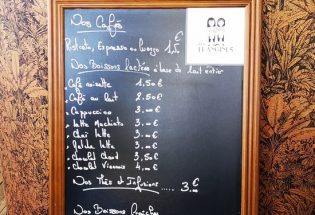 Nos Cafés
Ristreto, Expresso ou Lungo 1,5 €
Nos Boissons lactées à base de lait entier
Café noisette 1,50€
Café au lait 2.50€
Cappuccino 3.00€
Latte Macchiato 3.00€
Chaï latte 3.00€
Golden latte 3.00€
Chocolat Chaud 3.00€
Chocolat Viennois 4.00€
Nos Thés et Infusions ..... 3.00 €
Nos Boissons fraîches